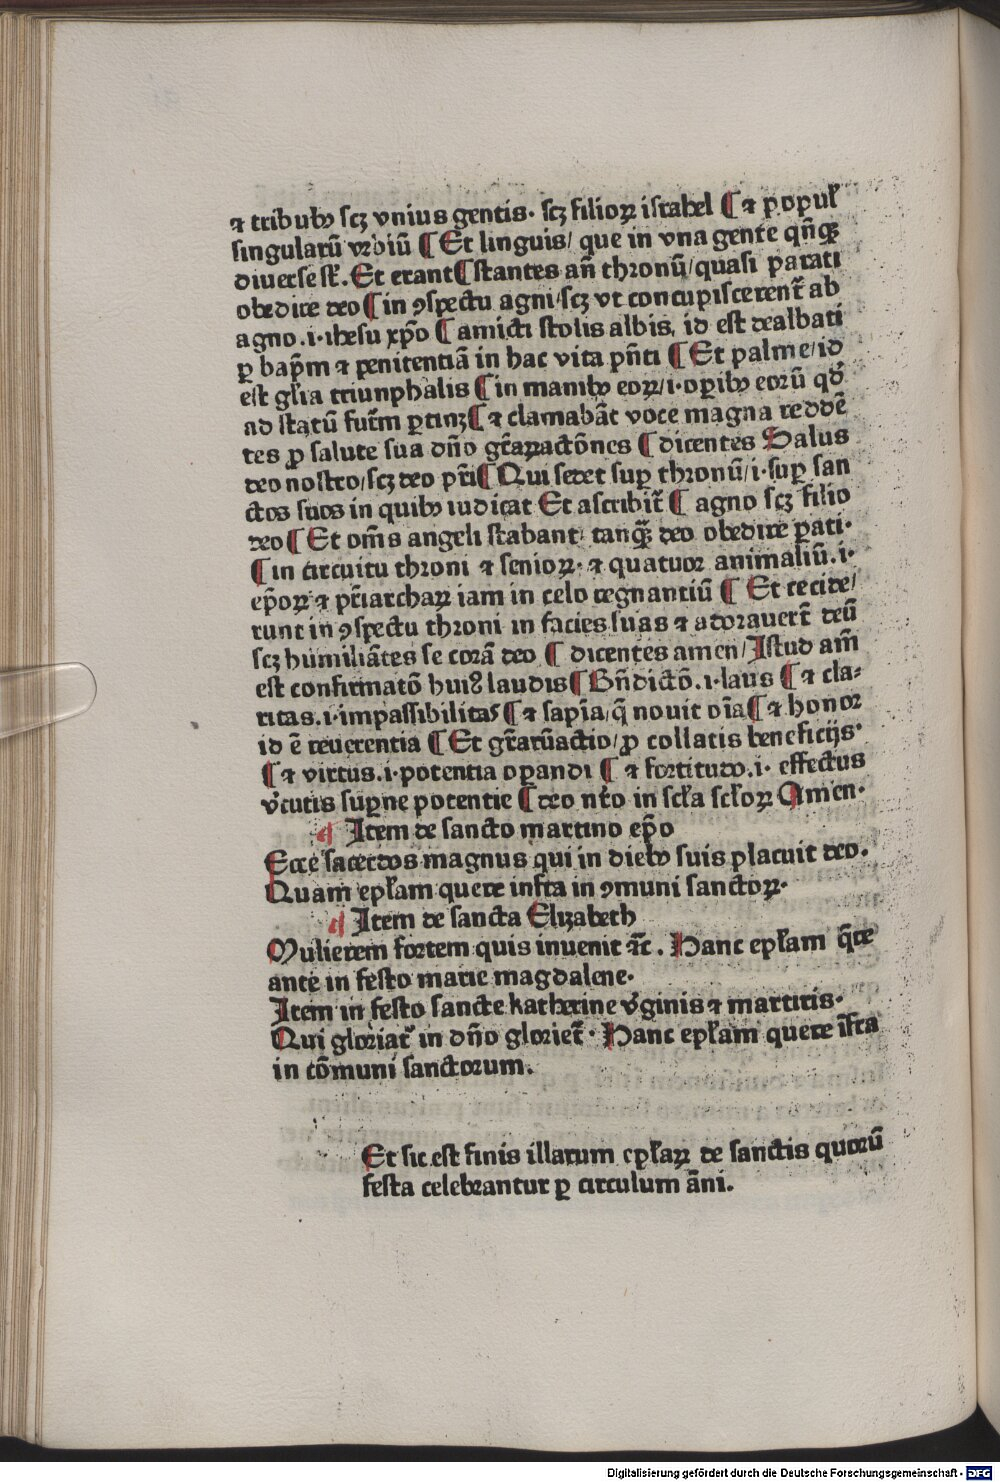 ⁊ tribubꝰ scꝫ vnius gentis· scꝫ filioꝝ israhel ¶ ⁊ ꝓpopul᷑
singularū vrbiū ¶ Et linguis/ que in vna gente qn̄qꝫ
diuerse st̄. Et erant ¶ stantes an̄ thronū/ quasi parati
obedire deo ¶ in ꝯspectu agni/ scꝫ vt concupiscerent᷑ ab
agno .i· ihesu xp̄o ¶ amicti stolis albis, id est dealbati
ꝑ bap̄m ⁊ penitentiā in hac vita pn̄ti ¶ Et palme/ id
est gl̄ia triumphalis ¶ in manibꝰ eoꝝ/ i· oꝑibꝰ eorū qd̄
ad statū fut᷑m ꝑtinꝫ ¶ ⁊ clamabāt voce magna reddē
tes ꝓ salute sua dn̄o gr̄aꝝactōnes ¶ dicentes Salus
deo nostro/ scꝫ deo pr̄i ¶ Qui sedet suꝑ thronū/ i· suꝑ san
ctos suos in quibꝰ iudicat Et ascribit᷑ ¶ agno scꝫ filio
deo ¶ Et om̄s angeli stabant tanqꝫ̄ deo obedire ꝑati·
¶ in circuitu throni ⁊ senioꝝ· ⁊ quatuor animaliū .i·
ep̄oꝝ ⁊ pr̄iarchaꝝ iam in celo regnantiū ¶ Et cecide/
runt in ꝯspectu throni in facies suas ⁊ adorauert̄ deū
scꝫ humiliātes se corā deo ¶ dicentes amen/ Istud am̄
est confirmatō huiꝰ laudis ¶ Bn̄dictō .i· laus ¶ ⁊ cla-
ritas .i· impassibilitas ¶ ⁊ sapīa/ q̄ nouit oīa ¶ ⁊ honor
id ē reuerentia ¶ Et gr̄aꝝactio/ ꝓ collatis beneficijs·
¶ ⁊ virtus .i· potentia oꝑandi ¶ ⁊ fortitudo .i· effectus
v̓tutis suꝑne potentie ¶ deo nr̄o in scl̄a scl̄oꝝ Amen·
¶ Item de sancto martino ep̄o
Ecce sacerdos magnus qui in diebꝰ suis placuit deo.
Quam ep̄lam quere infra in ꝯmuni sanctoꝝ·
¶ Item de sancta Elizabeth
Mulierem fortem quis inuenit ⁊c̄. Hanc ep̄lam q̄re
ante in festo marie magdalene·
Item in festo sancte katherine v̓ginis ⁊ martiris·
Qui gloriat᷑ in dn̄o gloriet᷑· Hanc ep̄lam quere īfra
in cōmuni sanctorum.
Et sic est finis illarum ep̄laꝝ de sanctis quorū
festa celebrantur ꝑ circulum āni.
Digitalisierung gefördert durch die Deutsche Forschungsgemeinschaft - DFG